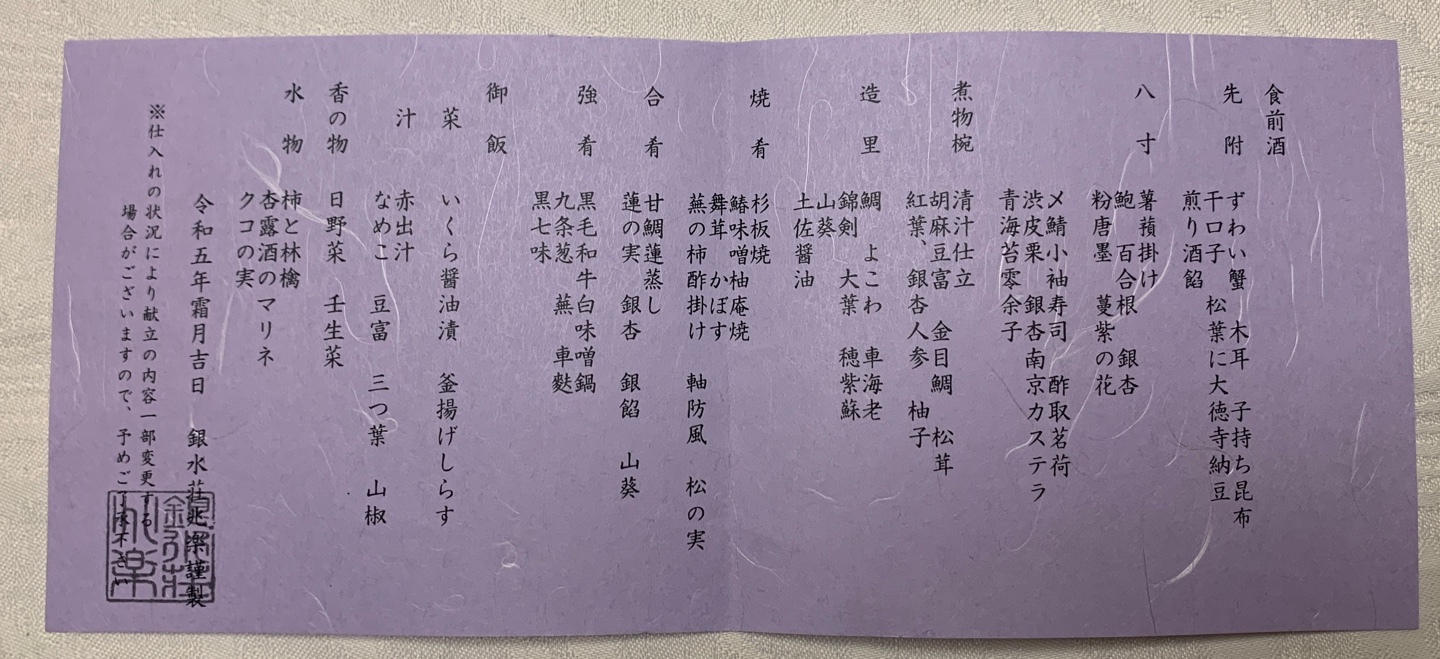 食前酒
先附
ずわい蟹　木耳　子持ち昆布
干口子　松葉に大徳寺納豆
煎り酒餡
八寸
薯蕷掛け
鮑　百合根　銀杏
粉唐墨　蔓紫の花
〆鯖小袖寿司　酢取茗荷
渋皮栗　銀杏南京カステラ
青海苔零余子
煮物椀
清汁仕立
胡麻豆富　金目鯛　松茸
紅葉、銀杏人参　柚子
造里
鯛　よこわ　車海老
錦剣　大葉　穂紫蘇
山葵
土佐醤油
焼肴
杉板焼
鰆味噌柚庵焼
舞茸　かぼす
蕪の柿酢掛け　軸防風　松の実
合肴
甘鯛蓮蒸し
蓮の実　銀杏　銀餡　山葵
強肴
黒毛和牛白味噌鍋
九条葱　蕪　車麩
黒七味
御飯
菜
いくら醤油漬　釜揚げしらす
汁
赤出汁
なめこ　豆富　三つ葉　山椒
香の物
日野菜　壬生菜
水物
柿と林檎
杏露酒のマリネ
クコの実
令和五年霜月吉日　銀水荘兆楽謹製
※仕入れの状況により献立の内容一部変更する
場合がございますので、予めご了承下さい
銀水荘
兆楽